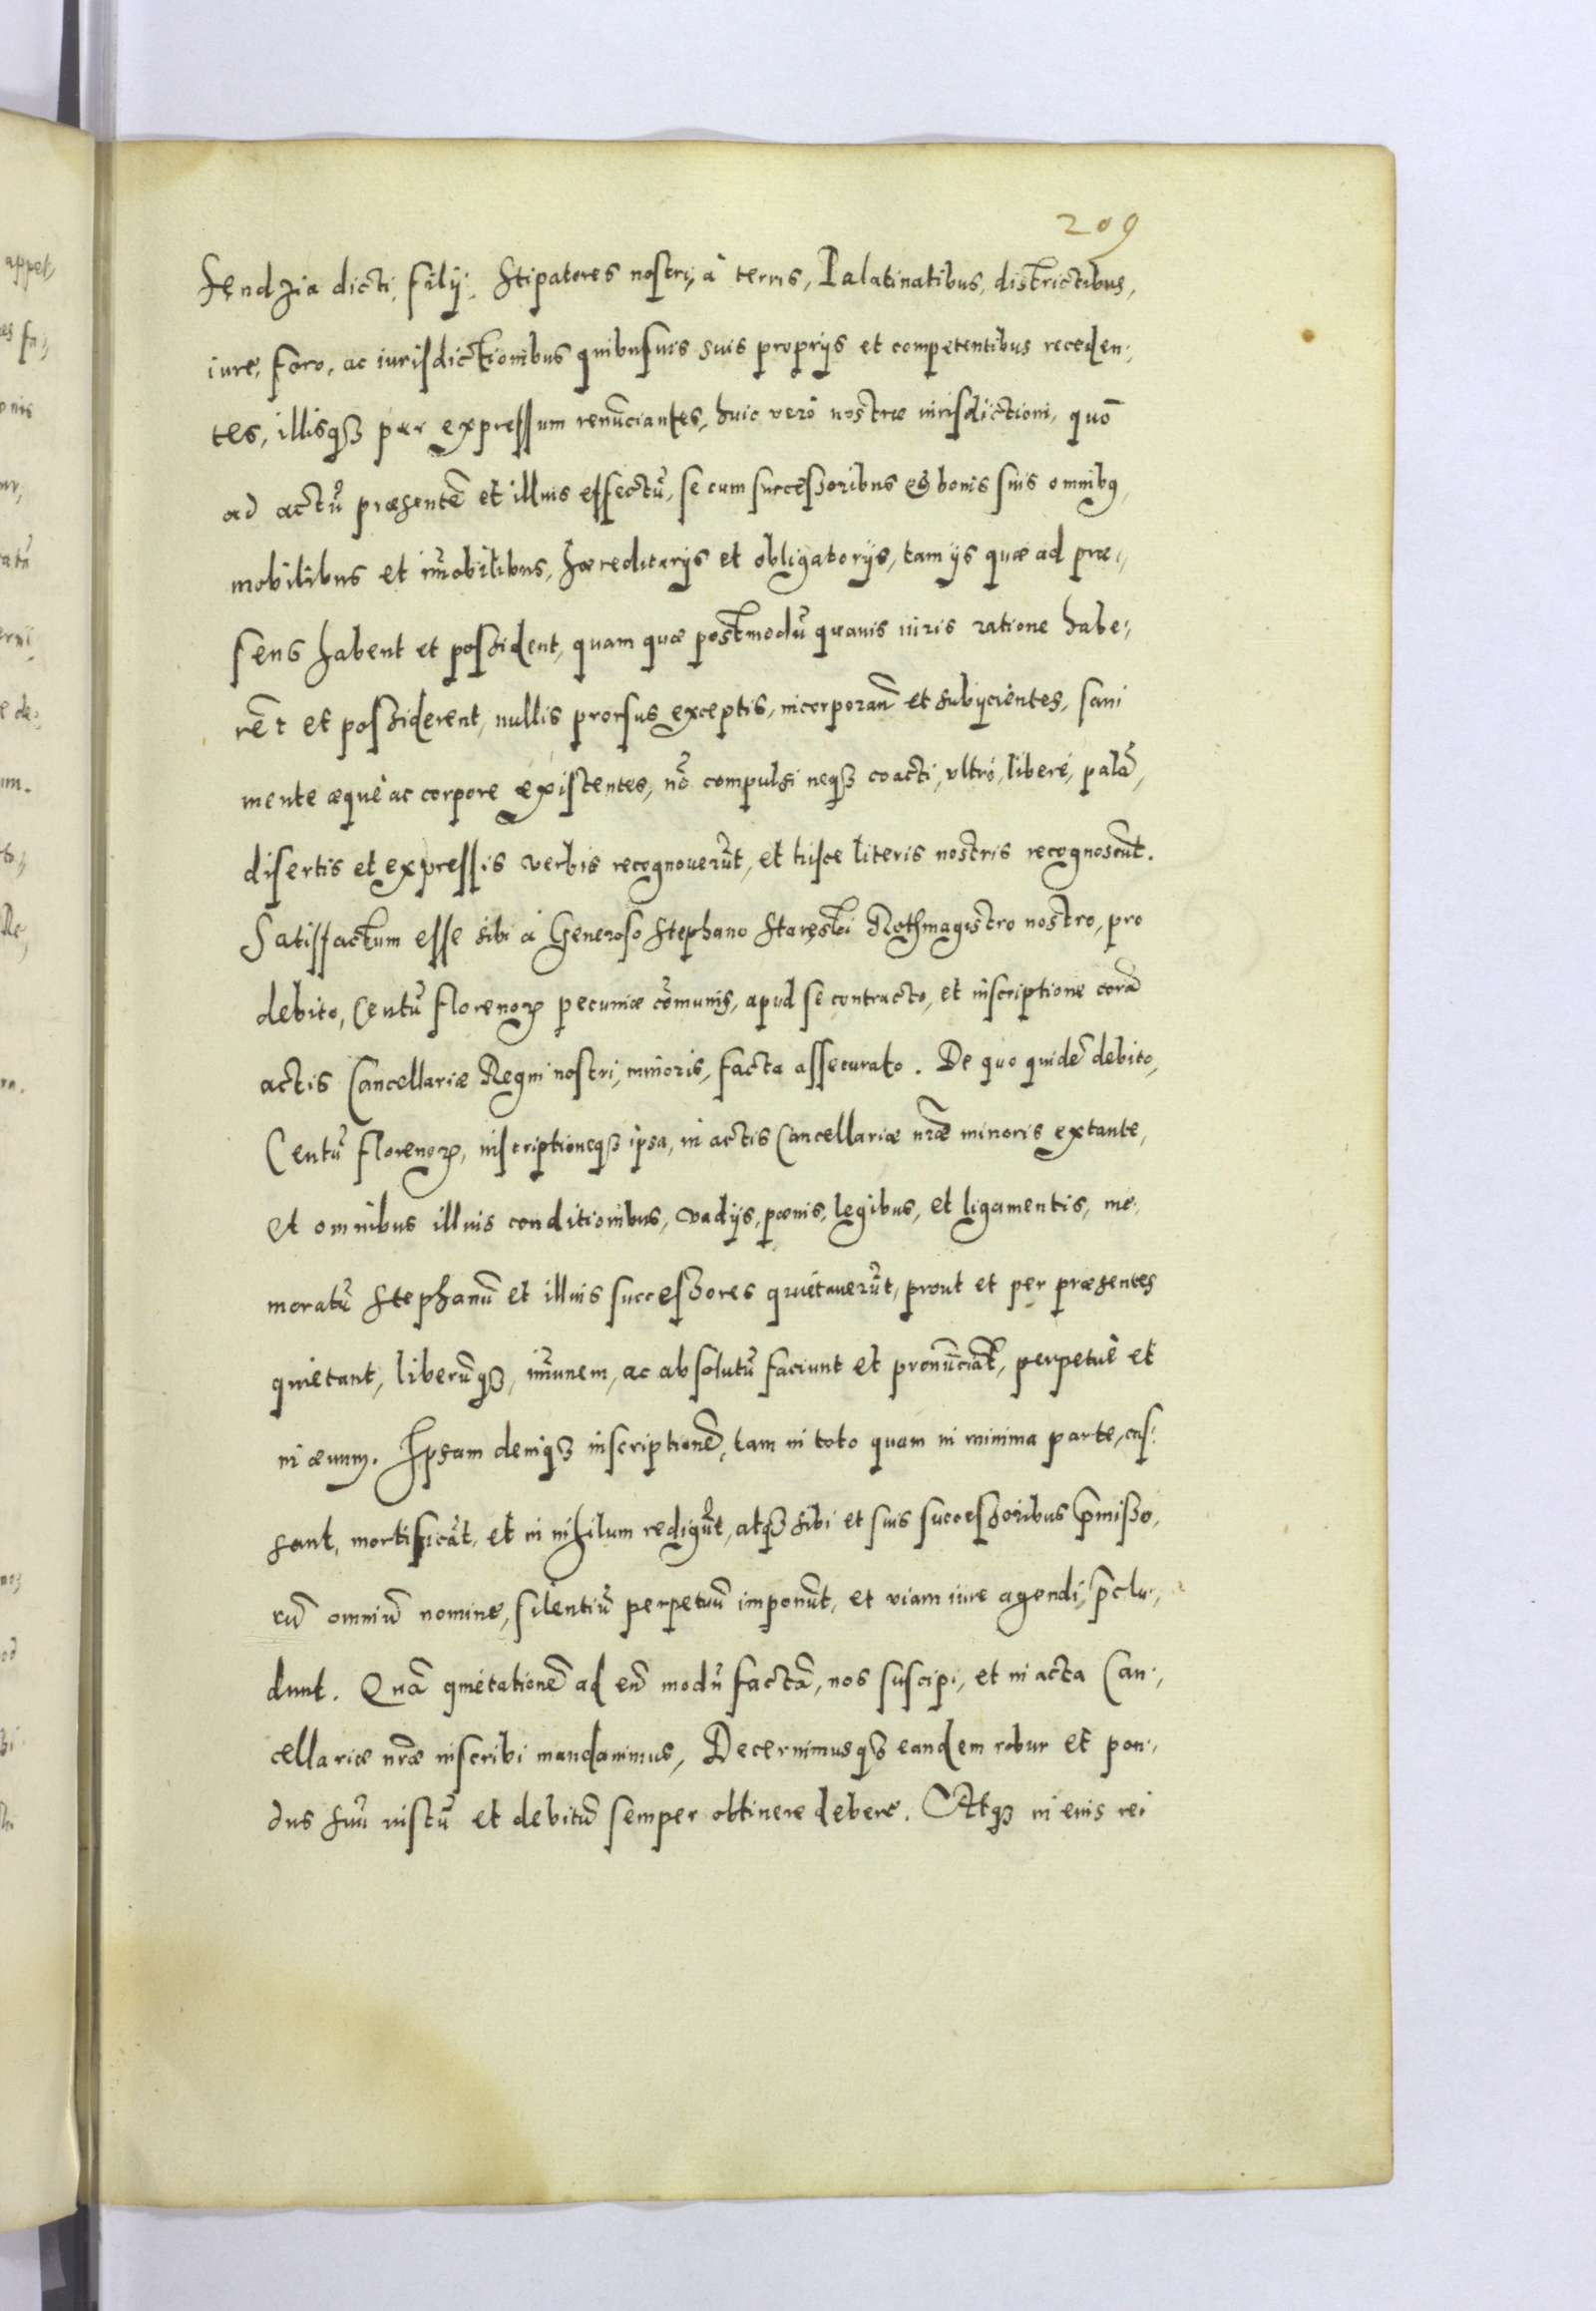 209
Sendzia dicti, filij: Stipatores nostri, à terris, Palatinatibus, districtibus,
iure, foro, ac iurisdictionibus quibusuis suis proprijs et competentibus receden:
tes, illisqꝫ per expressum renūciantes, huic verò nostræ iurisdictioni, quò
ad actū præsentē et illius effectū, se cum successoribus et bonis suis omnibꝰ,
mobilibus et im̄obilibus, hæreditarijs et obligatorijs, tam ijs quæ ad præ:
sens habent et possident, quam quæ postmodū quauis iuris ratione habe:
rēt et possiderent, nullis prorsus exceptis, incorporan̄ et subijcientes, sani
mente æquè ac corpore existentes, nō compulsi neqꝫ coacti, vltrò, liberè, palā,
disertis et expressis verbis recognouerūt, et hisce literis nostris recognoscūt.
Satisfactum esse sibi à Generoso Stephano Rothmagistro nostro, pro
debito, Centū florenoꝝ pecuniæ cōmunis, apud se contracto, et inscriptione corā
actis Cancellariæ Regni nostri, minoris, facta assecurato. De quo quidē debito,
Centū florenoꝝ, inscriptioneqꝫ ipsa, in actis Cancellariæ nr̄æ minoris extante,
et omnibus illius conditionibus, vadijs, pœnis, legibus, et ligamentis, me:
moratū Stephanū et illius successores quietauerūt, prout et per præsentes
quietant, liberūqꝫ, im̄unem, ac absolutū faciunt et pronūciāt, perpetuè et
in æuum. Ipsam deniqꝫ inscriptionē, tam in toto quam in minima parte, cas:
sant, mortificāt, et in nihilum redigūt, atqꝫ sibi et suis successoribus p̄misso:
rū omniū nomine, silentiū perpetuū imponūt, et viam iure agendi, p̄clu:
dunt. Quā quietationē ad eū modū factā, nos suscipi, et in acta Can:
cellariæ nr̄æ inscribi mandauimus, Decernimusqꝫ eandem robur et pon:
dus suū iustū et debitū semper obtinere debere. Atqꝫ in eius rei